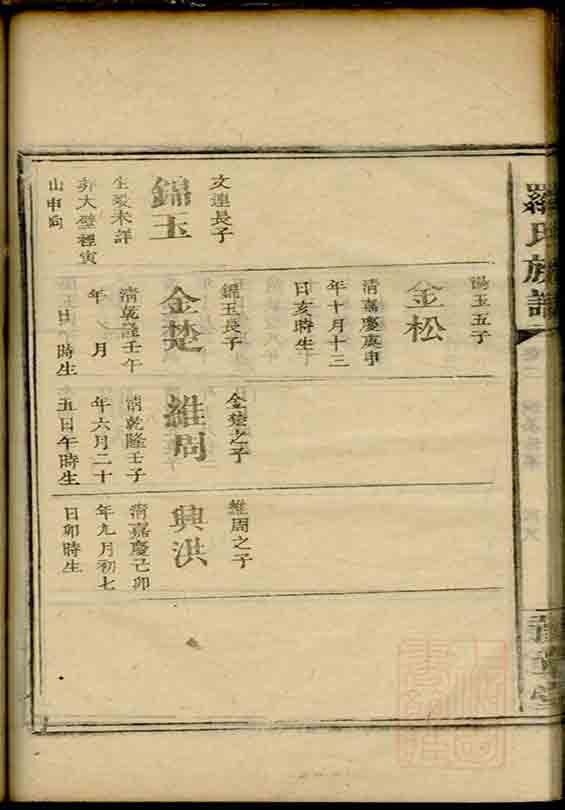 羅氏族譜
文連長子
錦玉
生歿未詳
葬大壁裡寅
山申向
錫玉五子
金松
清嘉慶庚申
年十月十三
日亥時生
錦玉長子
金楚
清乾隆壬午
年 月
日 時生
金楚之子
維周
清乾隆壬子
年六月二十
五日午時生
維周之子
興洪
清嘉慶己卯
年九月初七
日卯時生